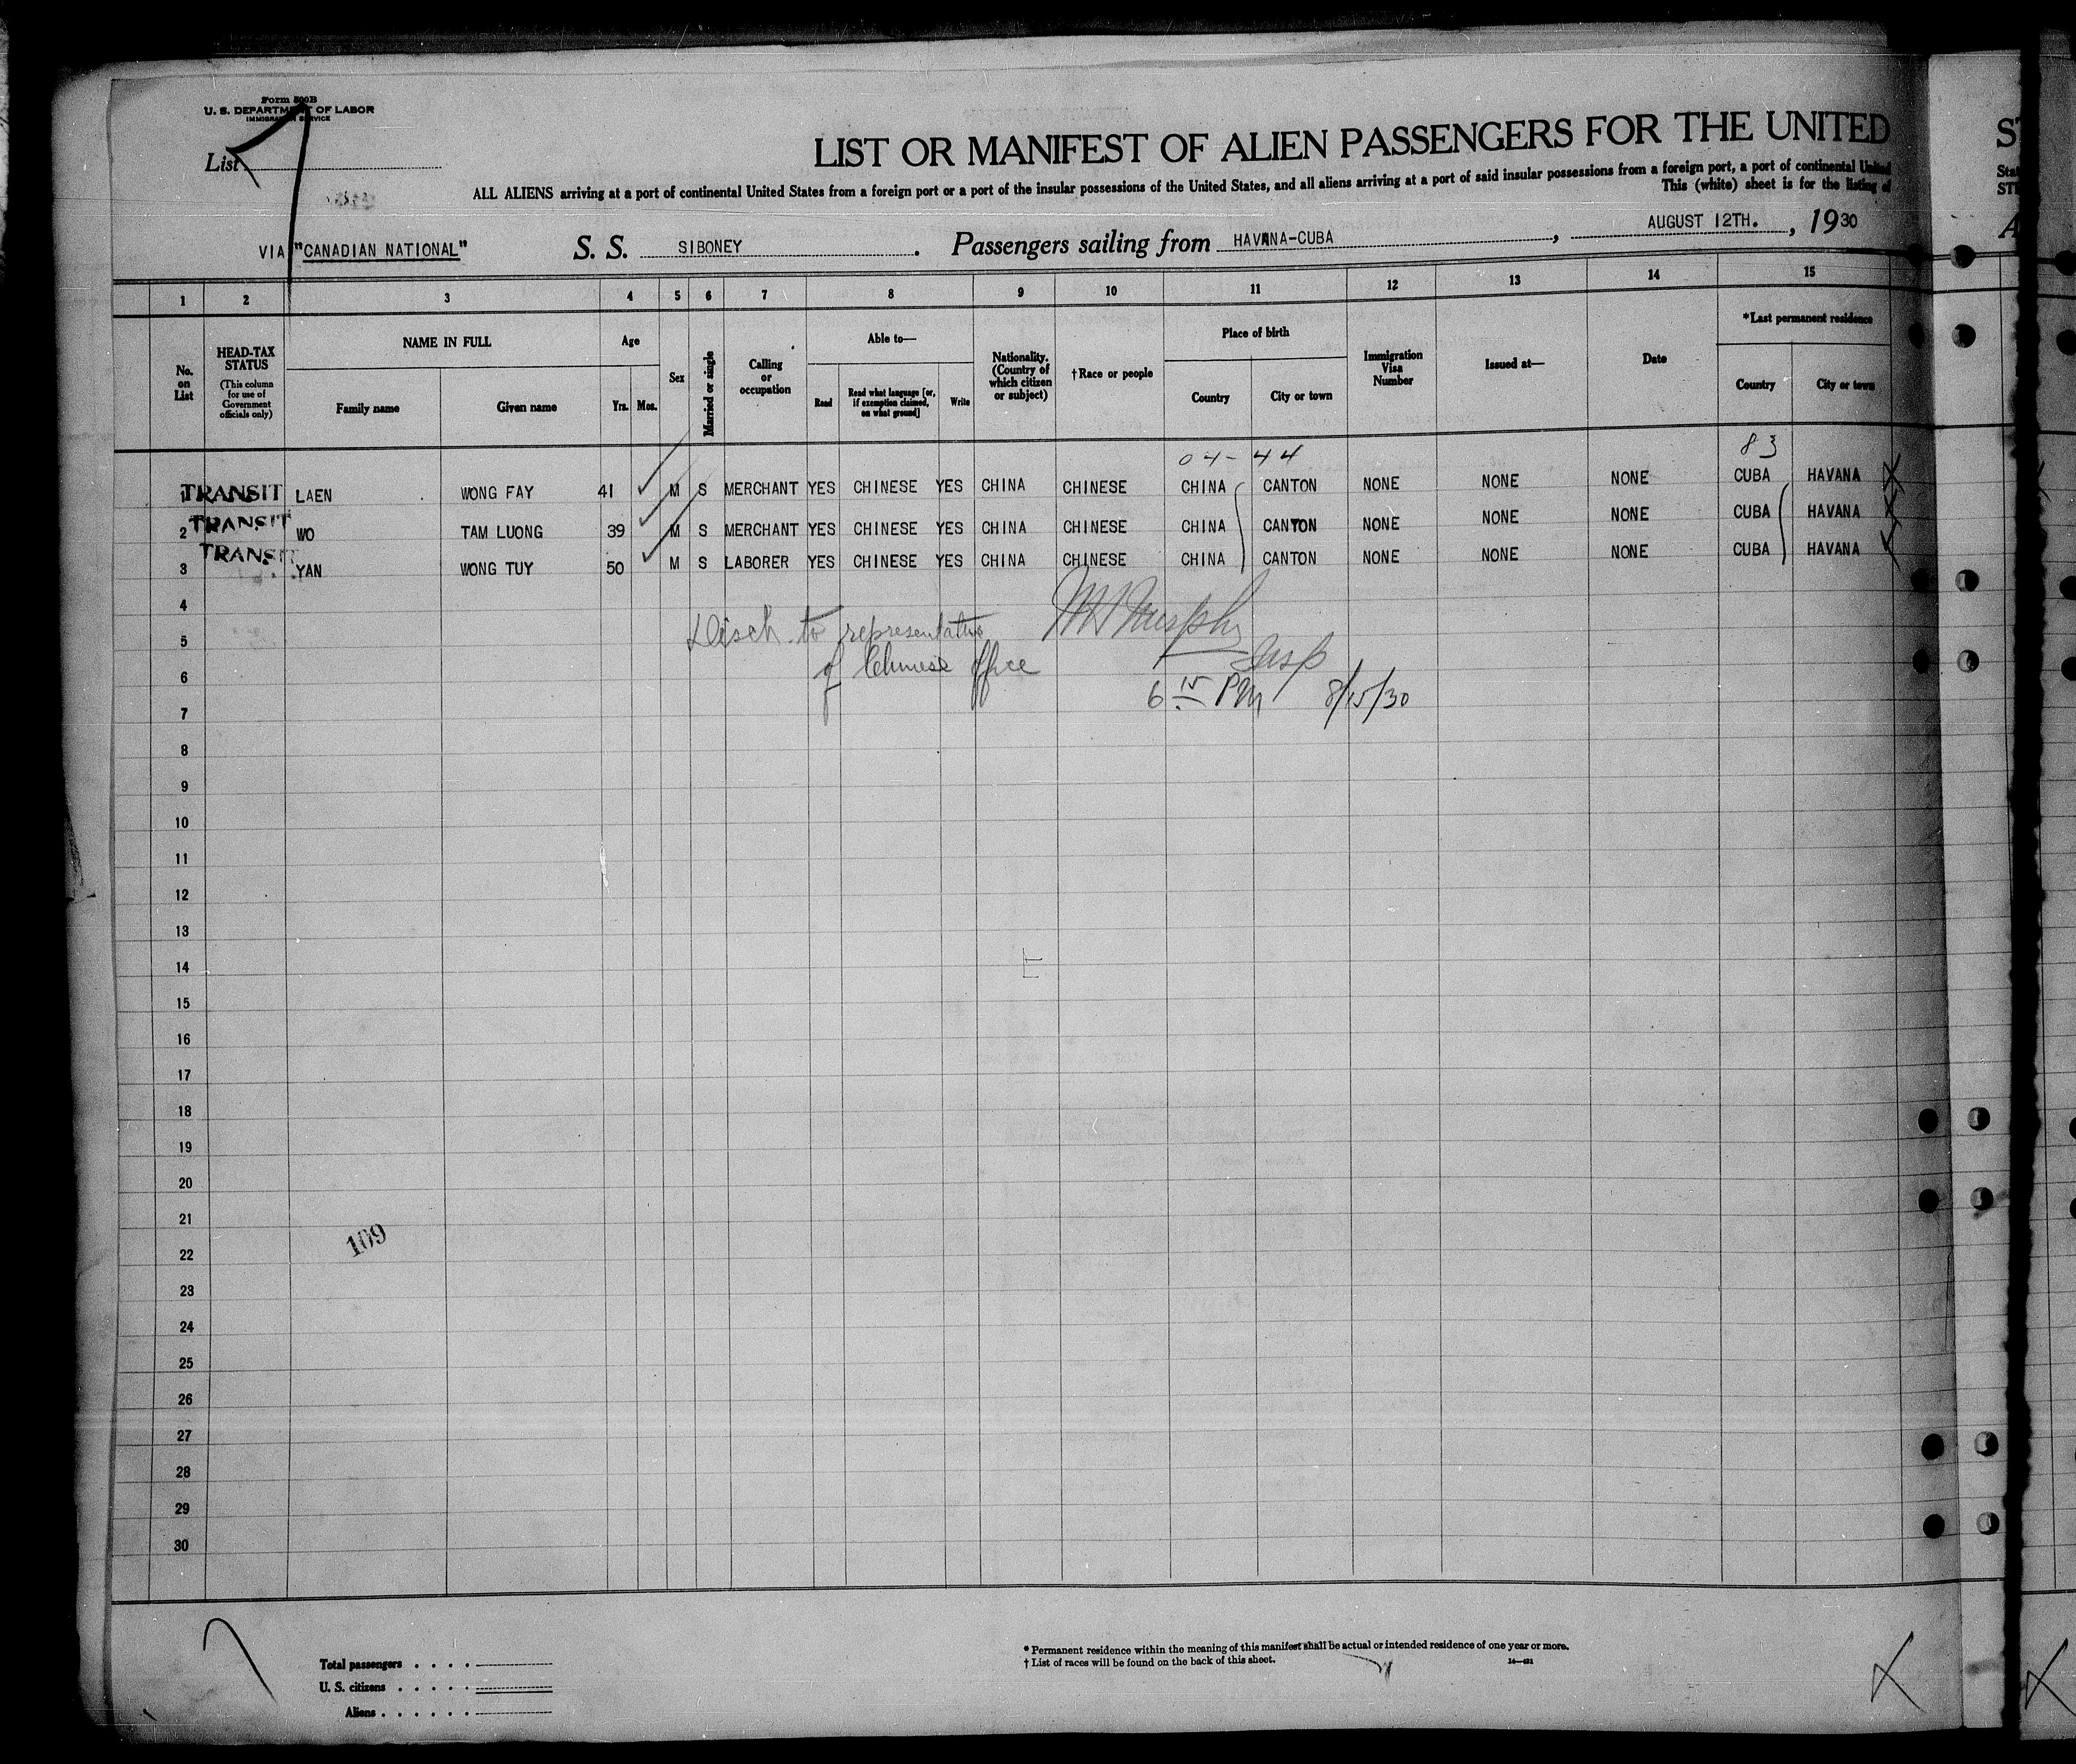 Form 500B
U. S. DEPARTMENT OF LABOR
IMMIGRATION SERVICE
List
LIST OR MANIFEST OF ALIEN PASSENGERS FOR THE UNITED
ALL ALIENS arriving at a port of continental United States from a foreign port or a port of the insular possessions of the United States, and all aliens arriving at a port of said insular possessions from a foreign port, a port of continental United
This (white) sheet is for the listing of
VIA "CANADIAN NATIONAL" S. S. SIBONEY . Passengers sailing from HAVANA-CUBA , AUGUST 12TH. , 1930
1 2 3 4 5 6 7 8 9 10 11 12 13 14 15
No. on List
HEAD-TAX STATUS
(This column for use of Government officials only)
NAME IN FULL
Family name Given name
Age
Yrs. Mos.
Sex
Married or single
Calling or occupation
Able to—
Read Read what language [or, if exemption claimed, on what ground] Write
Nationality. (Country of which citizen or subject)
†Race or people
Place of birth
Country City or town
Immigration Visa Number
Issued at—
Date
*Last permanent residence
Country City or town
04-44 83
1 TRANSIT LAEN WONG FAY 41 M S MERCHANT YES CHINESE YES CHINA CHINESE CHINA CANTON NONE NONE NONE CUBA HAVANA
2 TRANSIT WO TAM LUONG 39 M S MERCHANT YES CHINESE YES CHINA CHINESE CHINA CANTON NONE NONE NONE CUBA HAVANA
3 TRANSIT YAN WONG TUY 50 M S LABORER YES CHINESE YES CHINA CHINESE CHINA CANTON NONE NONE NONE CUBA HAVANA
4
5 Disch. to representative Murphy
6 of Chinese office Insp
7 6 15 PM 8/15/30
8
9
10
11
12
13
14
15
16
17
18
19
20
21
109
22
23
24
25
26
27
28
29
30
Total passengers
U. S. citizens
Aliens
* Permanent residence within the meaning of this manifest shall be actual or intended residence of one year or more.
† List of races will be found on the back of this sheet.